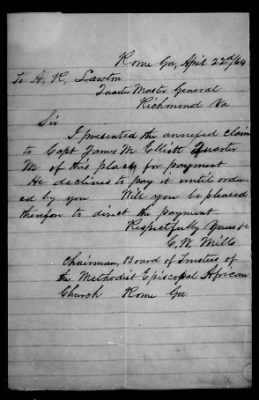 Rome Ga, April 22nd/64
To A. R. Lawton
Quarter Master General
Richmond Va
Sir
I presented the annexed claim
to Capt James M Elliott Quarter
M of this place for payment
He declines to pay it until order
ed by you Will you be pleased
therefor to direct the payment
Respectfully Yours &c
C. W. Mills
Chairman, Board of Trustees of
the Methodist Episcopal African
Church Rome Ga